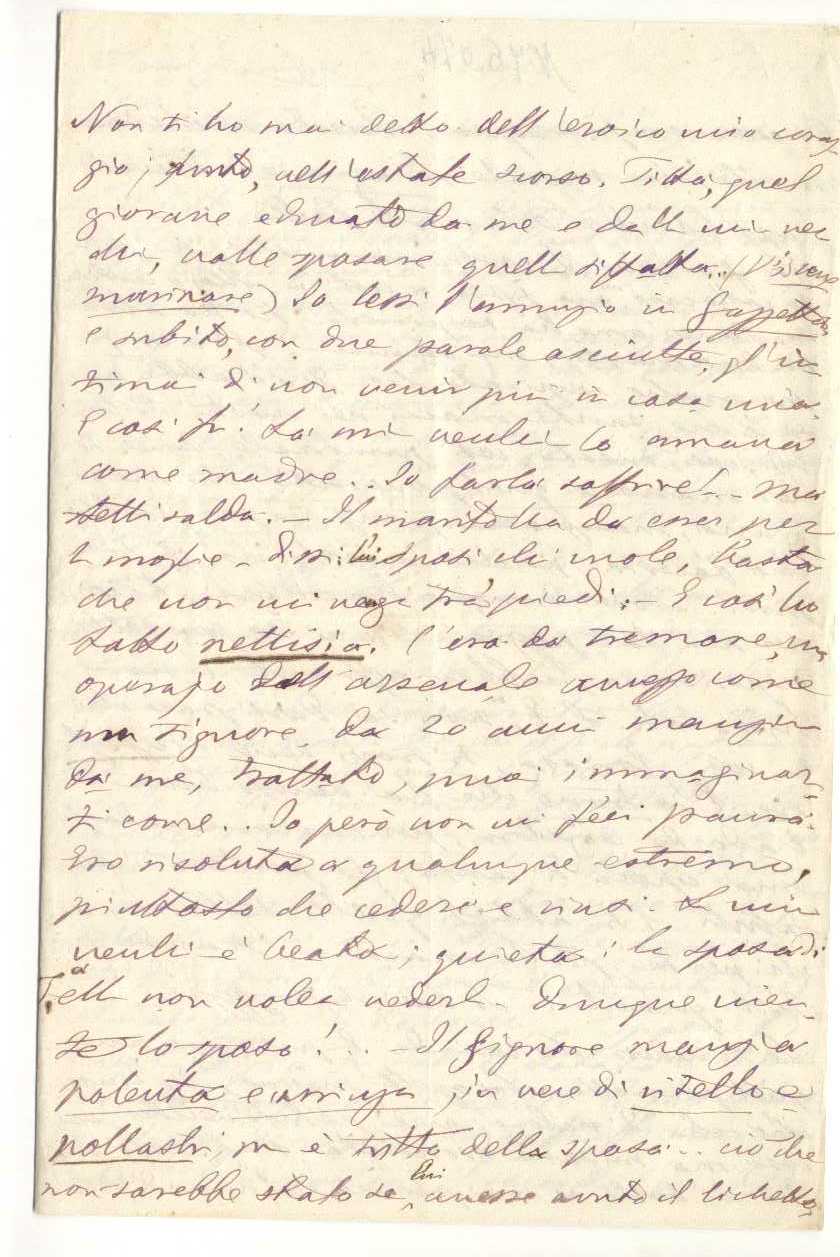 Non ti ho mai detto dell'eroico mio corag
gio; , nell'estate scorso. Titta, quel
giovane educato da me e dalla mia vec
chia, volle sposare quella siffatta.. (
marinare) Io lessi l'annuzio in Gazzetta
e subito, con due parole asciutte, gl'in
timai di non venir più in casa mia.
E così fu! La mia vecchia lo amava
come madre.. Io farla soffrire!.. ma
stetti salda. — Il marito ha da esser per
la moglie — dissi: lui sposi chi vuole, basta
che non mi venga trà piedi. — E così ho
fatto nettisia. C'era da tremare, un
operajo dell'arsenale avvezzo come
un Signore, da 20 anni mangia
da me, trattato, puoi immaginar-
ti come.. Io però non mi feci paura.
Ero risoluta a qualunque estremo,
piuttosto che cedere e vinsi. La mia
vecchia è beata, quieta: la sposa di
T. ella non volea vederla. Dunque nien-
te lo sposo!.. — Il Signore mangia
polenta e , in vece di vitello e
pollastri, è tutto della sposa.. ciò che
non sarebbe stato se lui avesse avuto il lichetto,